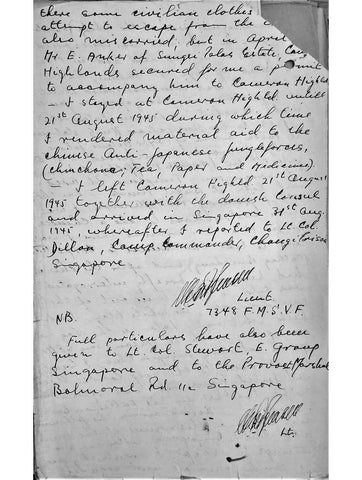 there some civilian clothes
attempt to escape from the
also miscarried, but in April
Mr. E. Anker of Sungei Palas Estate, Cam
Highlands secured for me a permit
to accompany him to Cameron Highld
- I stayed at Cameron Highld. untill
21st August 1945 during which time
I rendered material aid to the
chinese Anti-Japanese jungleforces,
(chinchona, Tea, Paper and Medicine)
- I left Cameron Highld 21st August
1945 together with the danish Consul
and arrived in Singapore 31st Aug.
1945, whereafter I reported to Lt. Col.
Dillon, Camp Commander, Changi Prison
Singapore
Lieut.
7348 F.M.S.V.F.
NB.
Full particulars have also been
given to Lt. Col Stewart, E. Group
Singapore and to the Provost Marshal
Balmoral Rd. 11a Singapore
Lt.